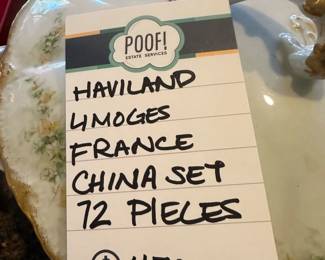 POOF!
ESTATE SERVICES
HAVILAND
LIMOGES
FRANCE
CHINA SET
72 PIECES